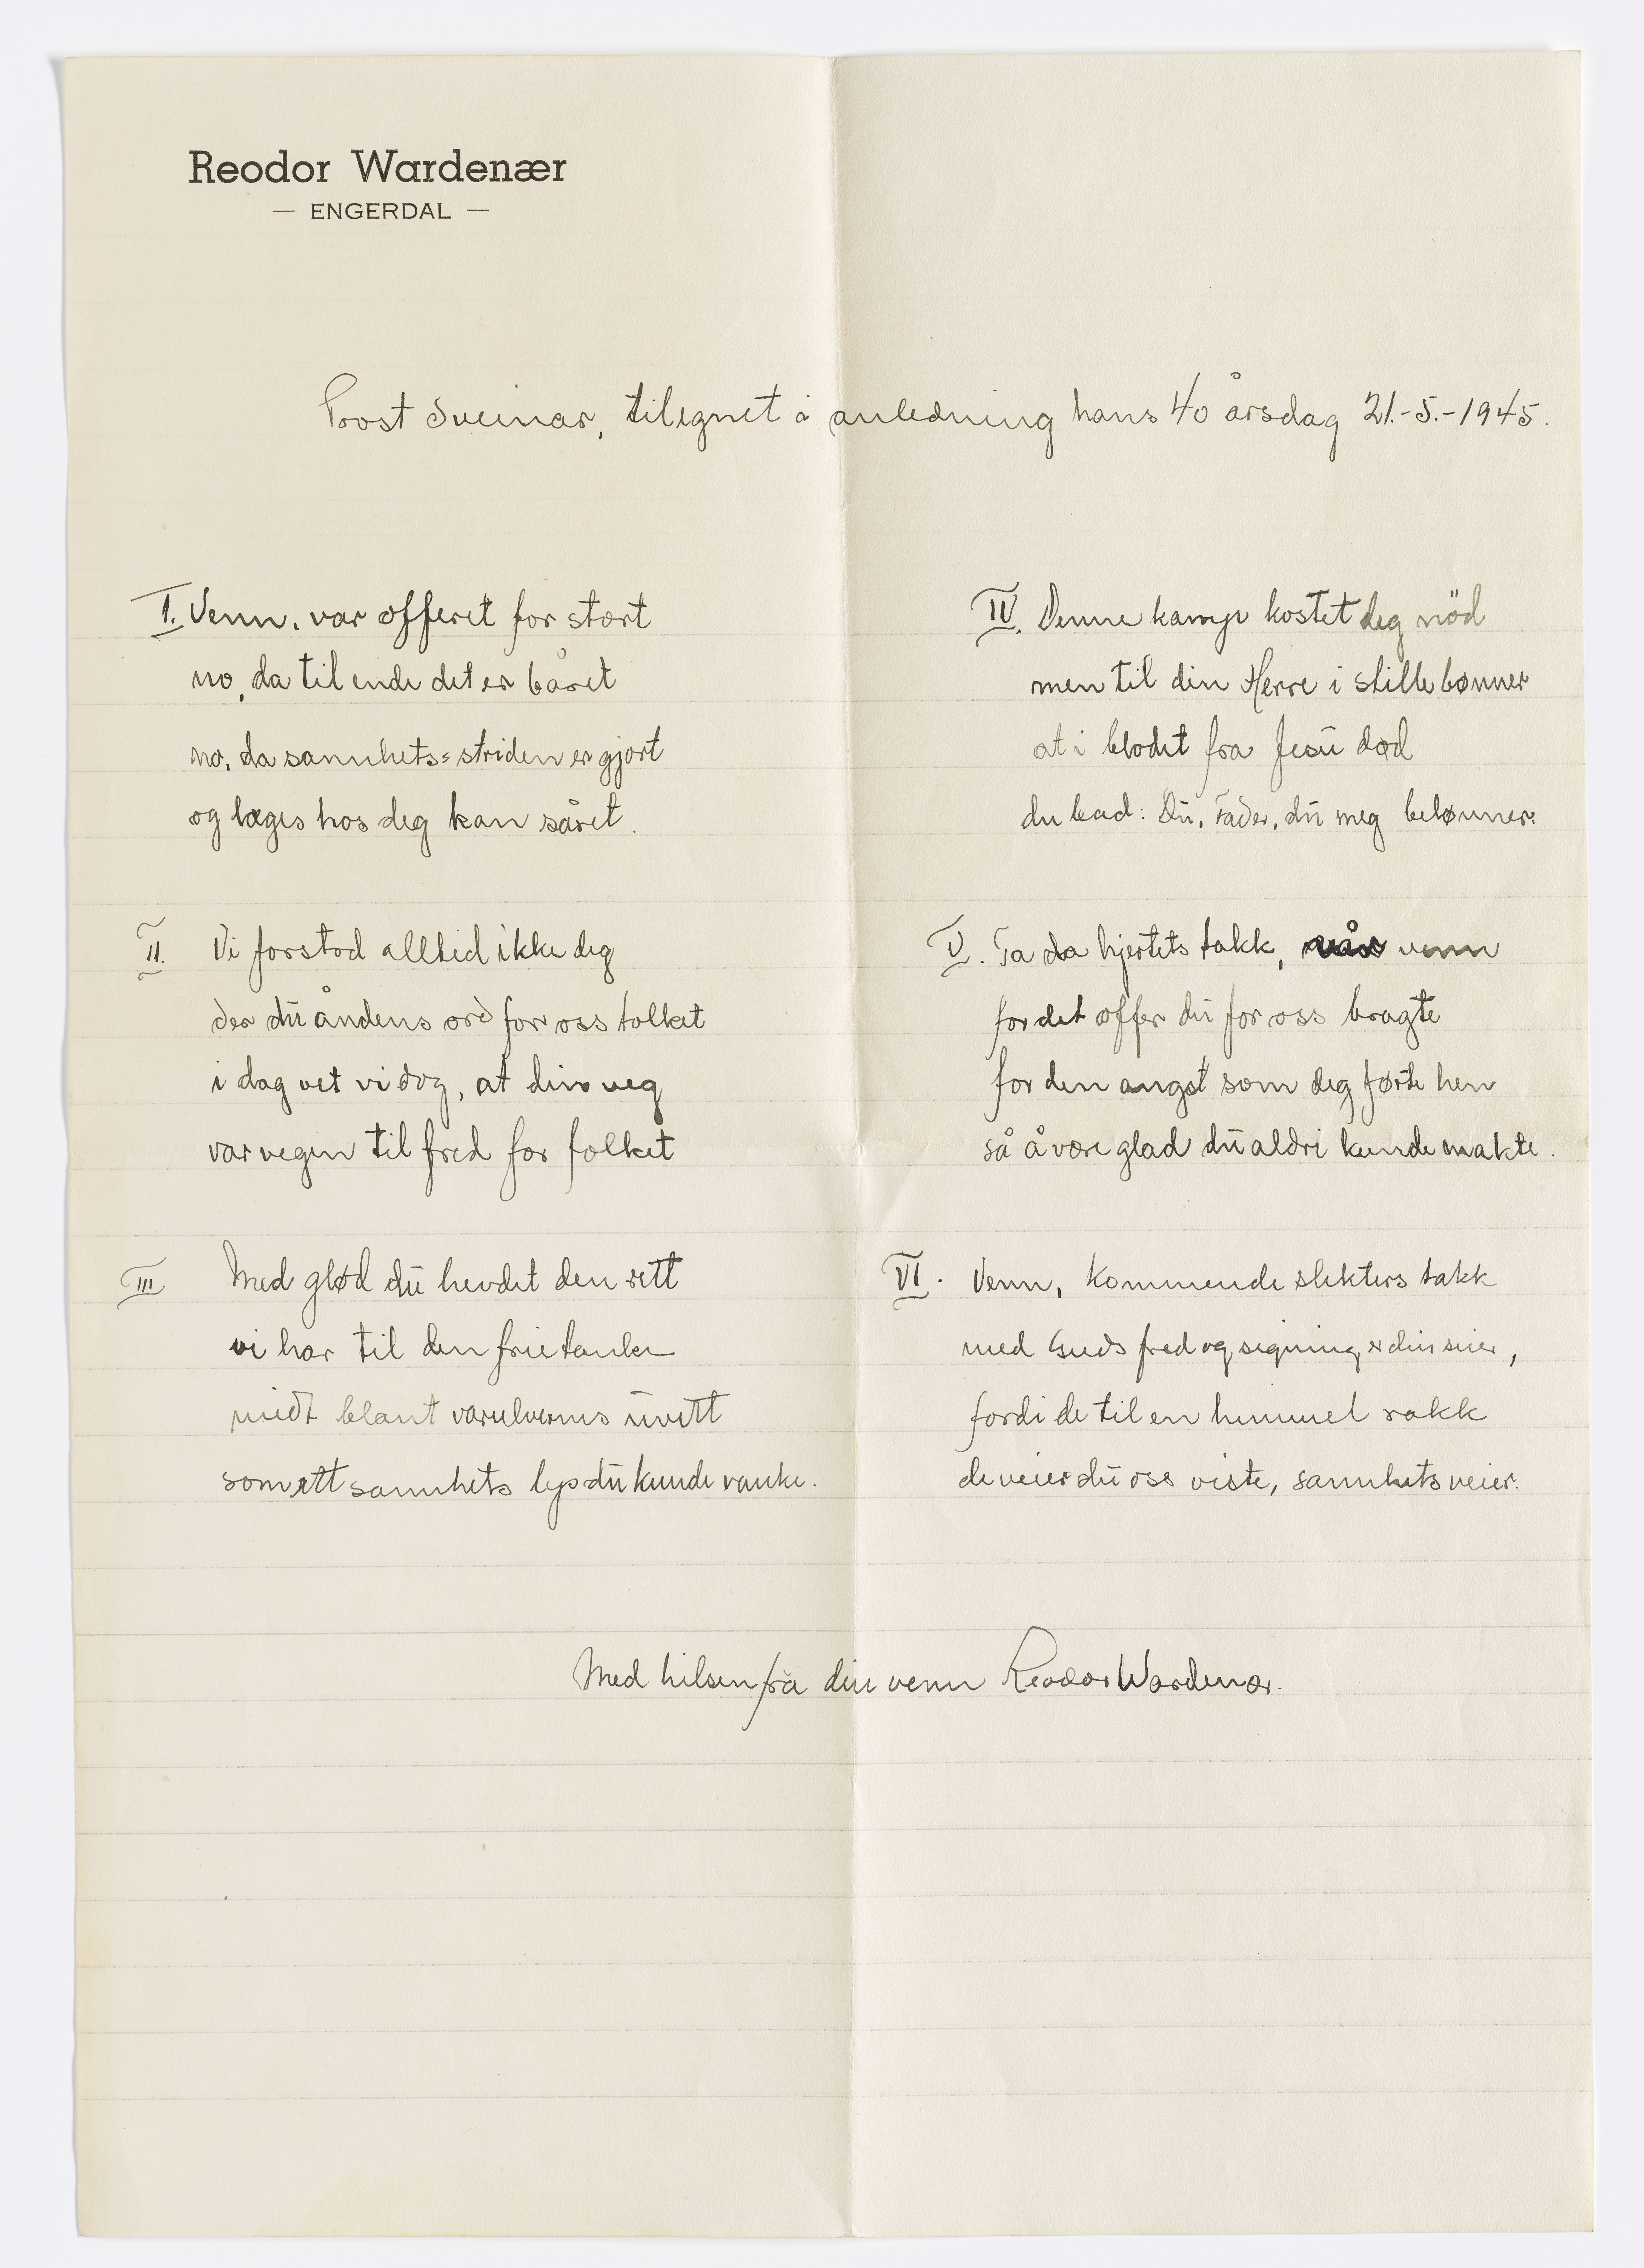 Reodor Wardenær
— ENGERDAL —
Prost Sveinar, tilegnet i anledning hans 40 årsdag 21.-5.-1945.
I. Venn, var offeret for stort
no, da til ende det er båret
no, da sannhets-striden er gjort
og læges hos deg kan såret.
II. Vi forstod alltid ikke deg
der du åndens ord for oss tolket
i dag vet vi dog, at din veg
var vegen til fred for folket
III Med glød du hevdet den rett
vi har til den frie tanke
midt blant varulvenes uvett
som ett sannhets lys du kunde vanke.
IV. Denne kamp kostet deg nöd
men til din Herre i stille bønner
at i blodet fra Jesu død
du bad: Du, Fader, du meg belønner.
V. Ta da hjertets takk, vår venn
for det offer du for oss bragte
for den angst som deg førte hen
så å være glad du aldri kunde makte.
VI. Venn, kommende slekters takk
med Guds fred og signing er din seier,
fordi de til en himmel rakk
de veier du oss viste, sannhets veier.
Med hilsen fra din venn Reodor Wardenær.